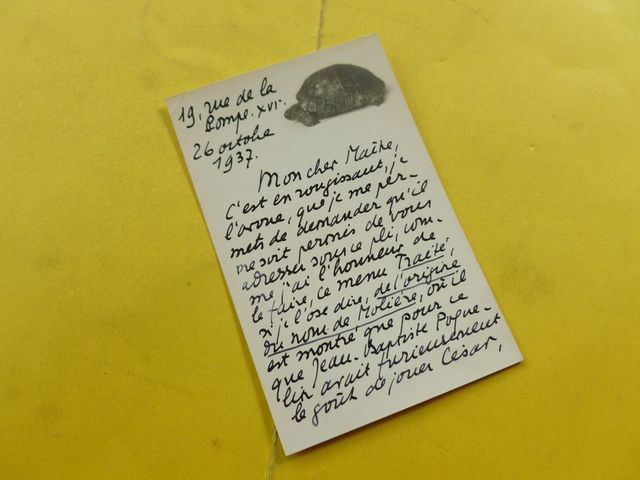 19, rue de la
Pompe. XVI.
26 octobre
1937.
Mon cher Maître,
C'est en rougissant, je
l'avoue, que je me per-
mets de demander qu'il
me soit permis de vous
adresser sous ce pli, com-
me j'ai l'honneur de
le faire, ce menu Traité,
si je l'ose dire, de l'origine
du nom de Molière, où il
est montré que pour ce
que Jean-Baptiste Poque-
lin avait furieusement
le goût de jouer César,